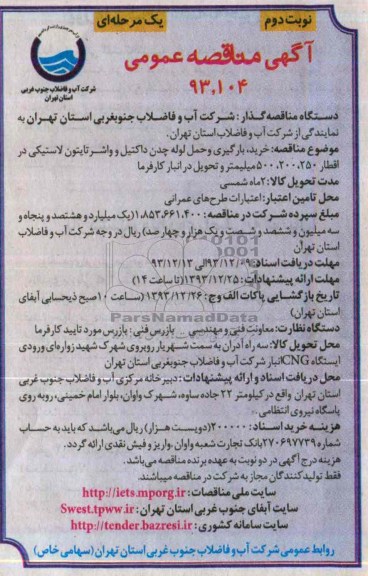 نوبت دوم
یک مرحله‌ای
آگهی مناقصه عمومی
۹۳,۱۰۴
شرکت آب و فاضلاب جنوب غربی
استان تهران
دستگاه مناقصه گذار : شرکت آب و فاضلاب جنوبغربی استان تهران به
نمایندگی از شرکت آب و فاضلاب استان تهران.
موضوع مناقصه: خرید، بارگیری وحمل لوله چدن داکتیل و واشر تایتون لاستیکی در
اقطار ۲۵۰،۲۰۰،۵۰۰میلیمتر و تحویل در انبار کارفرما
مدت تحویل کالا: ۲ماه شمسی
محل تامین اعتبار: اعتبارات طرح‌های عمرانی
مبلغ سپرده شرکت در مناقصه : ۱،۸۵۳،۶۶۱،۴۰۰(یک میلیارد و هشتصد و پنجاه و
سه میلیون و ششصد و شصت و یک هزار و چهار صد) ریال در وجه شرکت آب و فاضلاب
استان تهران
مهلت دریافت اسناد: ۹۳/۱۲/۰۹الی ۹۳/۱۲/۱۳
مهلت ارائه پیشنهادات : ۱۳۹۳/۱۲/۲۵(تا ساعت ۱۴)
تاریخ بازگشایی پاکات الف و ج : ۱۳۹۳/۱۲/۲۶ (ساعت ۱۰صبح ذیحسابی آبفای
استان تهران)
دستگاه نظارت: معاونت فنی و مهندسی بازرس فنی: بازرس مورد تایید کارفرما
محل تحویل کالا: سه راه آدران به سمت شهریار روبروی شهرک شهید زواره‌ای ورودی
ایستگاه CNGانبار شرکت آب و فاضلاب جنوبغربی استان تهران
محل دریافت اسناد و ارائه پیشنهادات : دبیرخانه مرکزی آب و فاضلاب جنوب غربی
استان تهران واقع در کیلومتر ۲۲ جاده ساوه، شهرک واوان، بلوار امام خمینی، روبه روی
پاسگاه نیروی انتظامی..
هزینه خرید اسناد : ۲۰۰۰۰۰(دویست هزار) ریال می‌باشد که باید به حساب
شماره ۲۷۰۶۹۷۷۳۹بانک تجارت شعبه واوان ،واریز و فیش نقدی ارائه گردد.
هزینه درج آگهی در دو نوبت به عهده برنده مناقصه می‌باشد.
فقط تولیدکنندگان مجاز به شرکت در مناقصه میباشند.
سایت ملی مناقصات : http://iets.mporg.ir
سایت آبفای جنوب غربی استان تهران : Swest.tpww.ir
سایت سامانه کشوری : http://tender.bazresi.ir
روابط عمومی شرکت آب و فاضلاب جنوب غربی استان تهران (سهامی خاص)
ParsNamadData